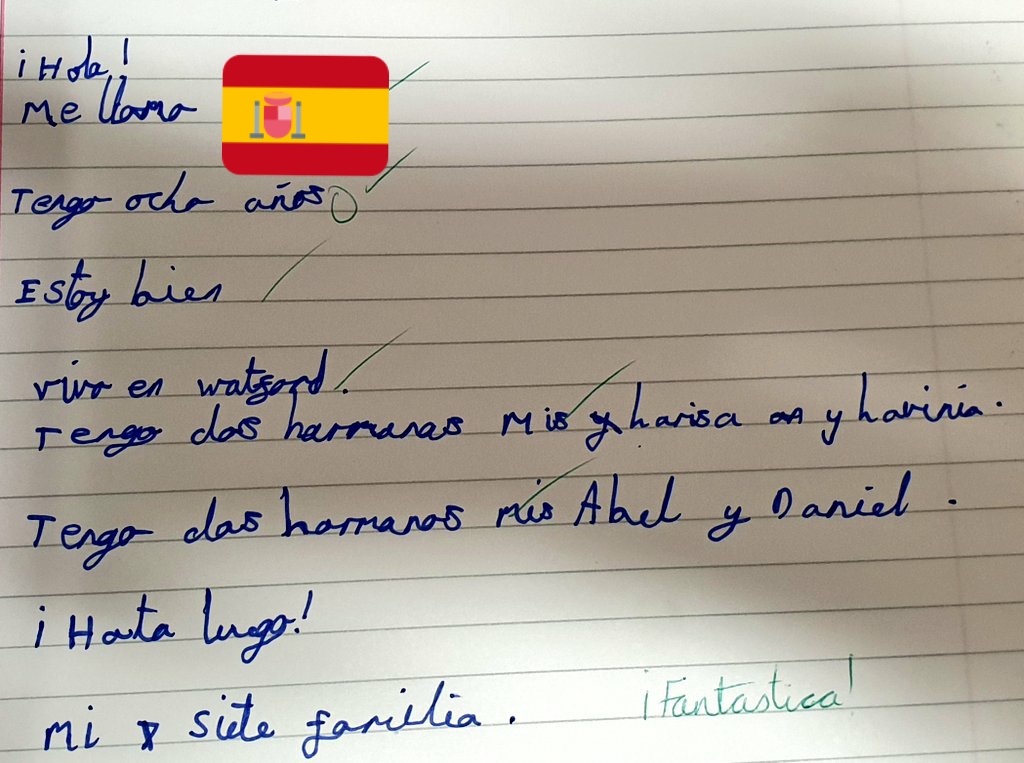 ¡Hola!
Me llamo
Tengo ocho años
Estoy bien
vivo en watford.
Tengo dos harmanas Mis y harisa y harinia.
Tengo dos harmanos mis Abel y Daniel.
¡Hata lugo!
Mi siete familia.
¡Fantastica!